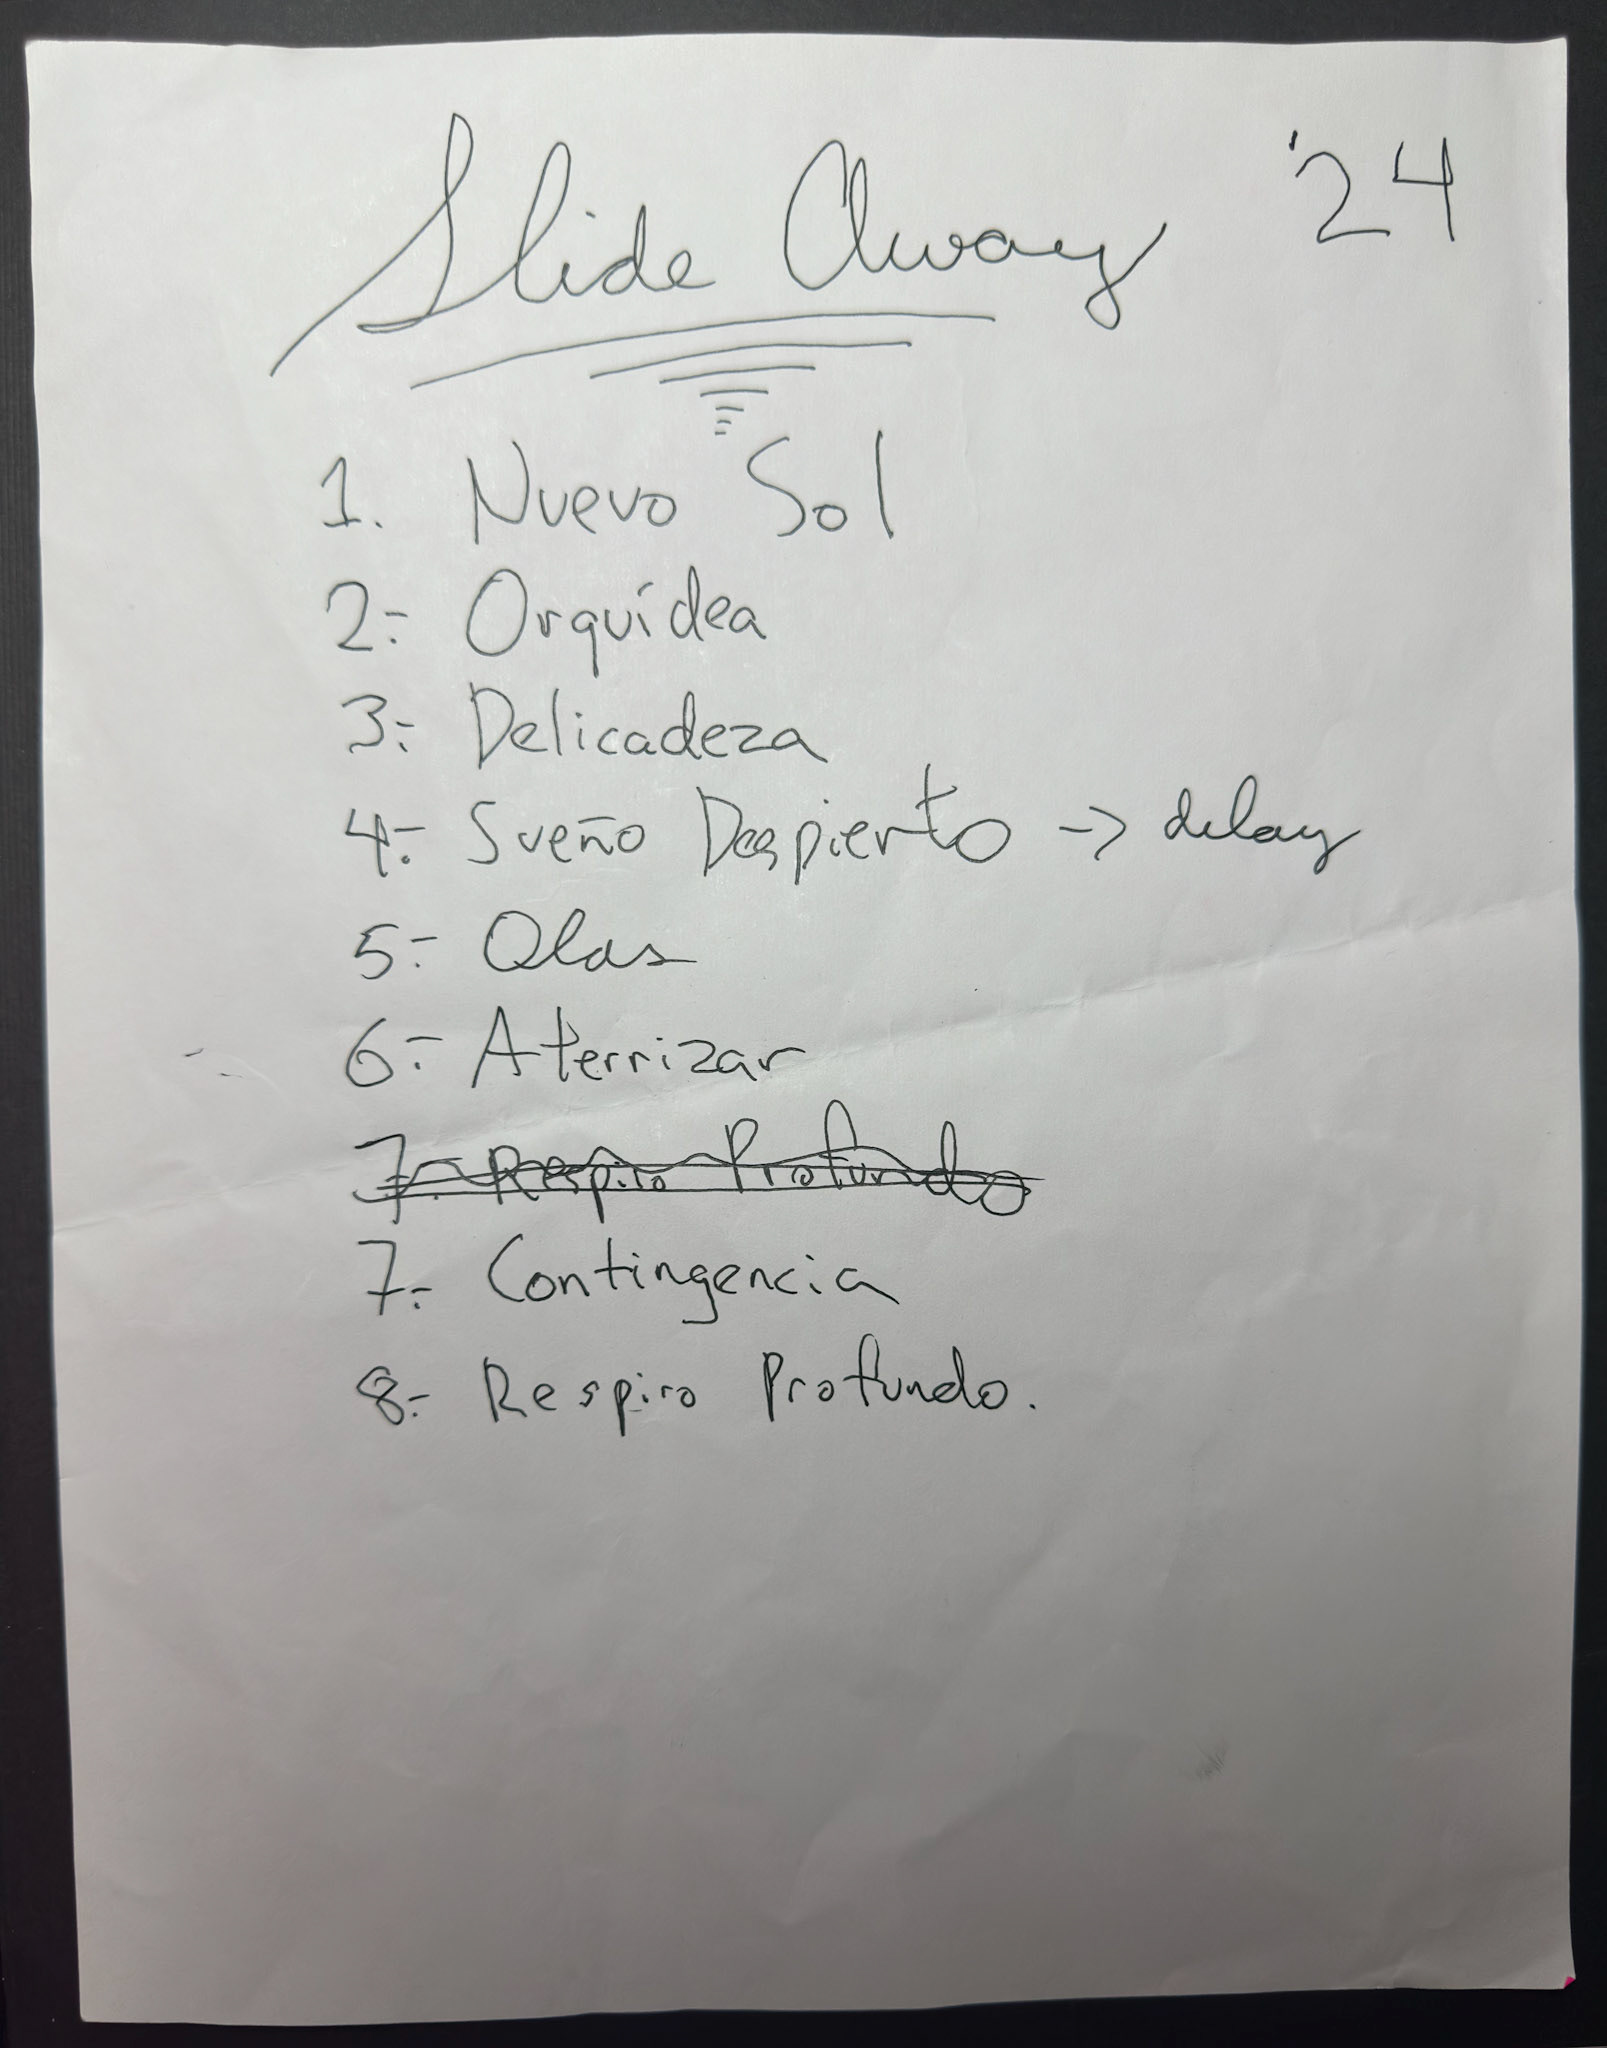 Slide Away '24
1. Nuevo Sol
2.- Orquídea
3.- Delicadeza
4.- Sueño Despierto -> delay
5.- Olas
6.- Aterrizar
7.- Respiro Profundo
7.- Contingencia
8.- Respiro Profundo.